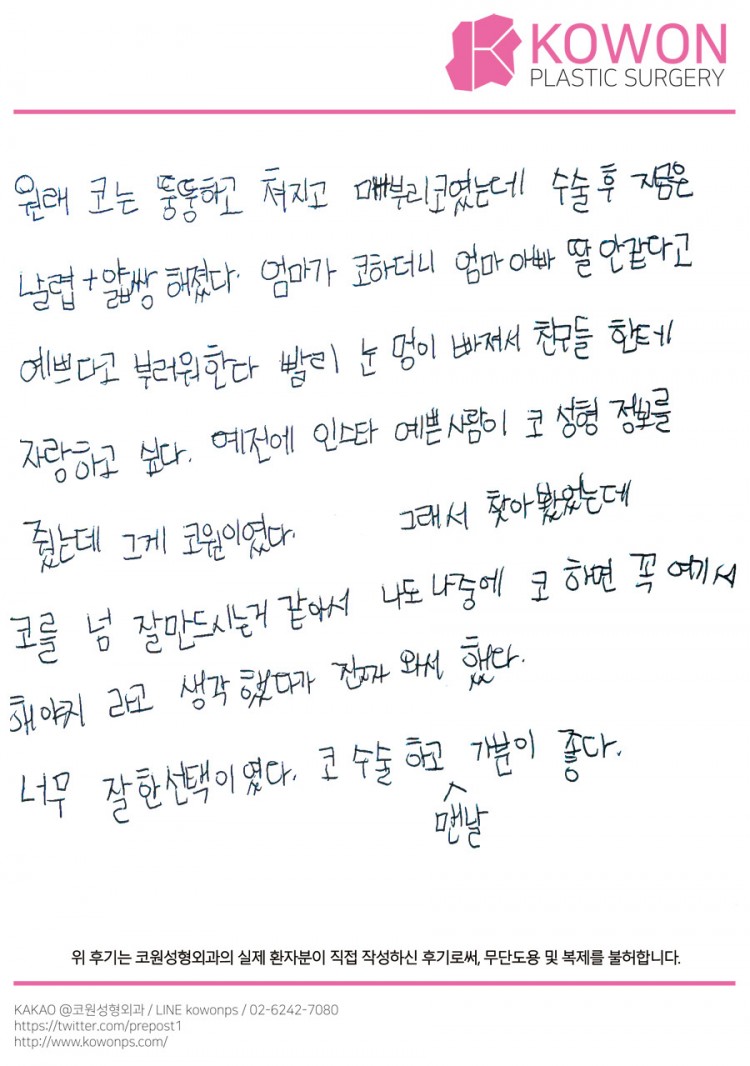 KOWON
PLASTIC SURGERY
원래 코는 뚱뚱하고 쳐지고 매부리코였는데 수술 후 지금은
날렵+얇쌍 해졌다. 엄마가 코하더니 엄마 아빠 딸 안같다고
예쁘다고 부러워한다 빨리 눈 멍이 빠져서 친구들 한테
자랑하고 싶다. 예전에 인스타 예쁜사람이 코 성형 정보를
줬는데 그게 코원이였다. 그래서 찾아봤었는데
코를 넘 잘만드시는거 같아서 나도 나중에 코 하면 꼭 여기서
해야지 라고 생각 했다가 진짜 와서 했다.
너무 잘한선택이였다. 코 수술하고 기분이 좋다.
맨날
위 후기는 코원성형외과의 실제 환자분이 직접 작성하신 후기로써, 무단도용 및 복제를 불허합니다.
KAKAO @코원성형외과 / LINE kowonps / 02-6242-7080
https://twitter.com/prepost1
http://www.kowonps.com/